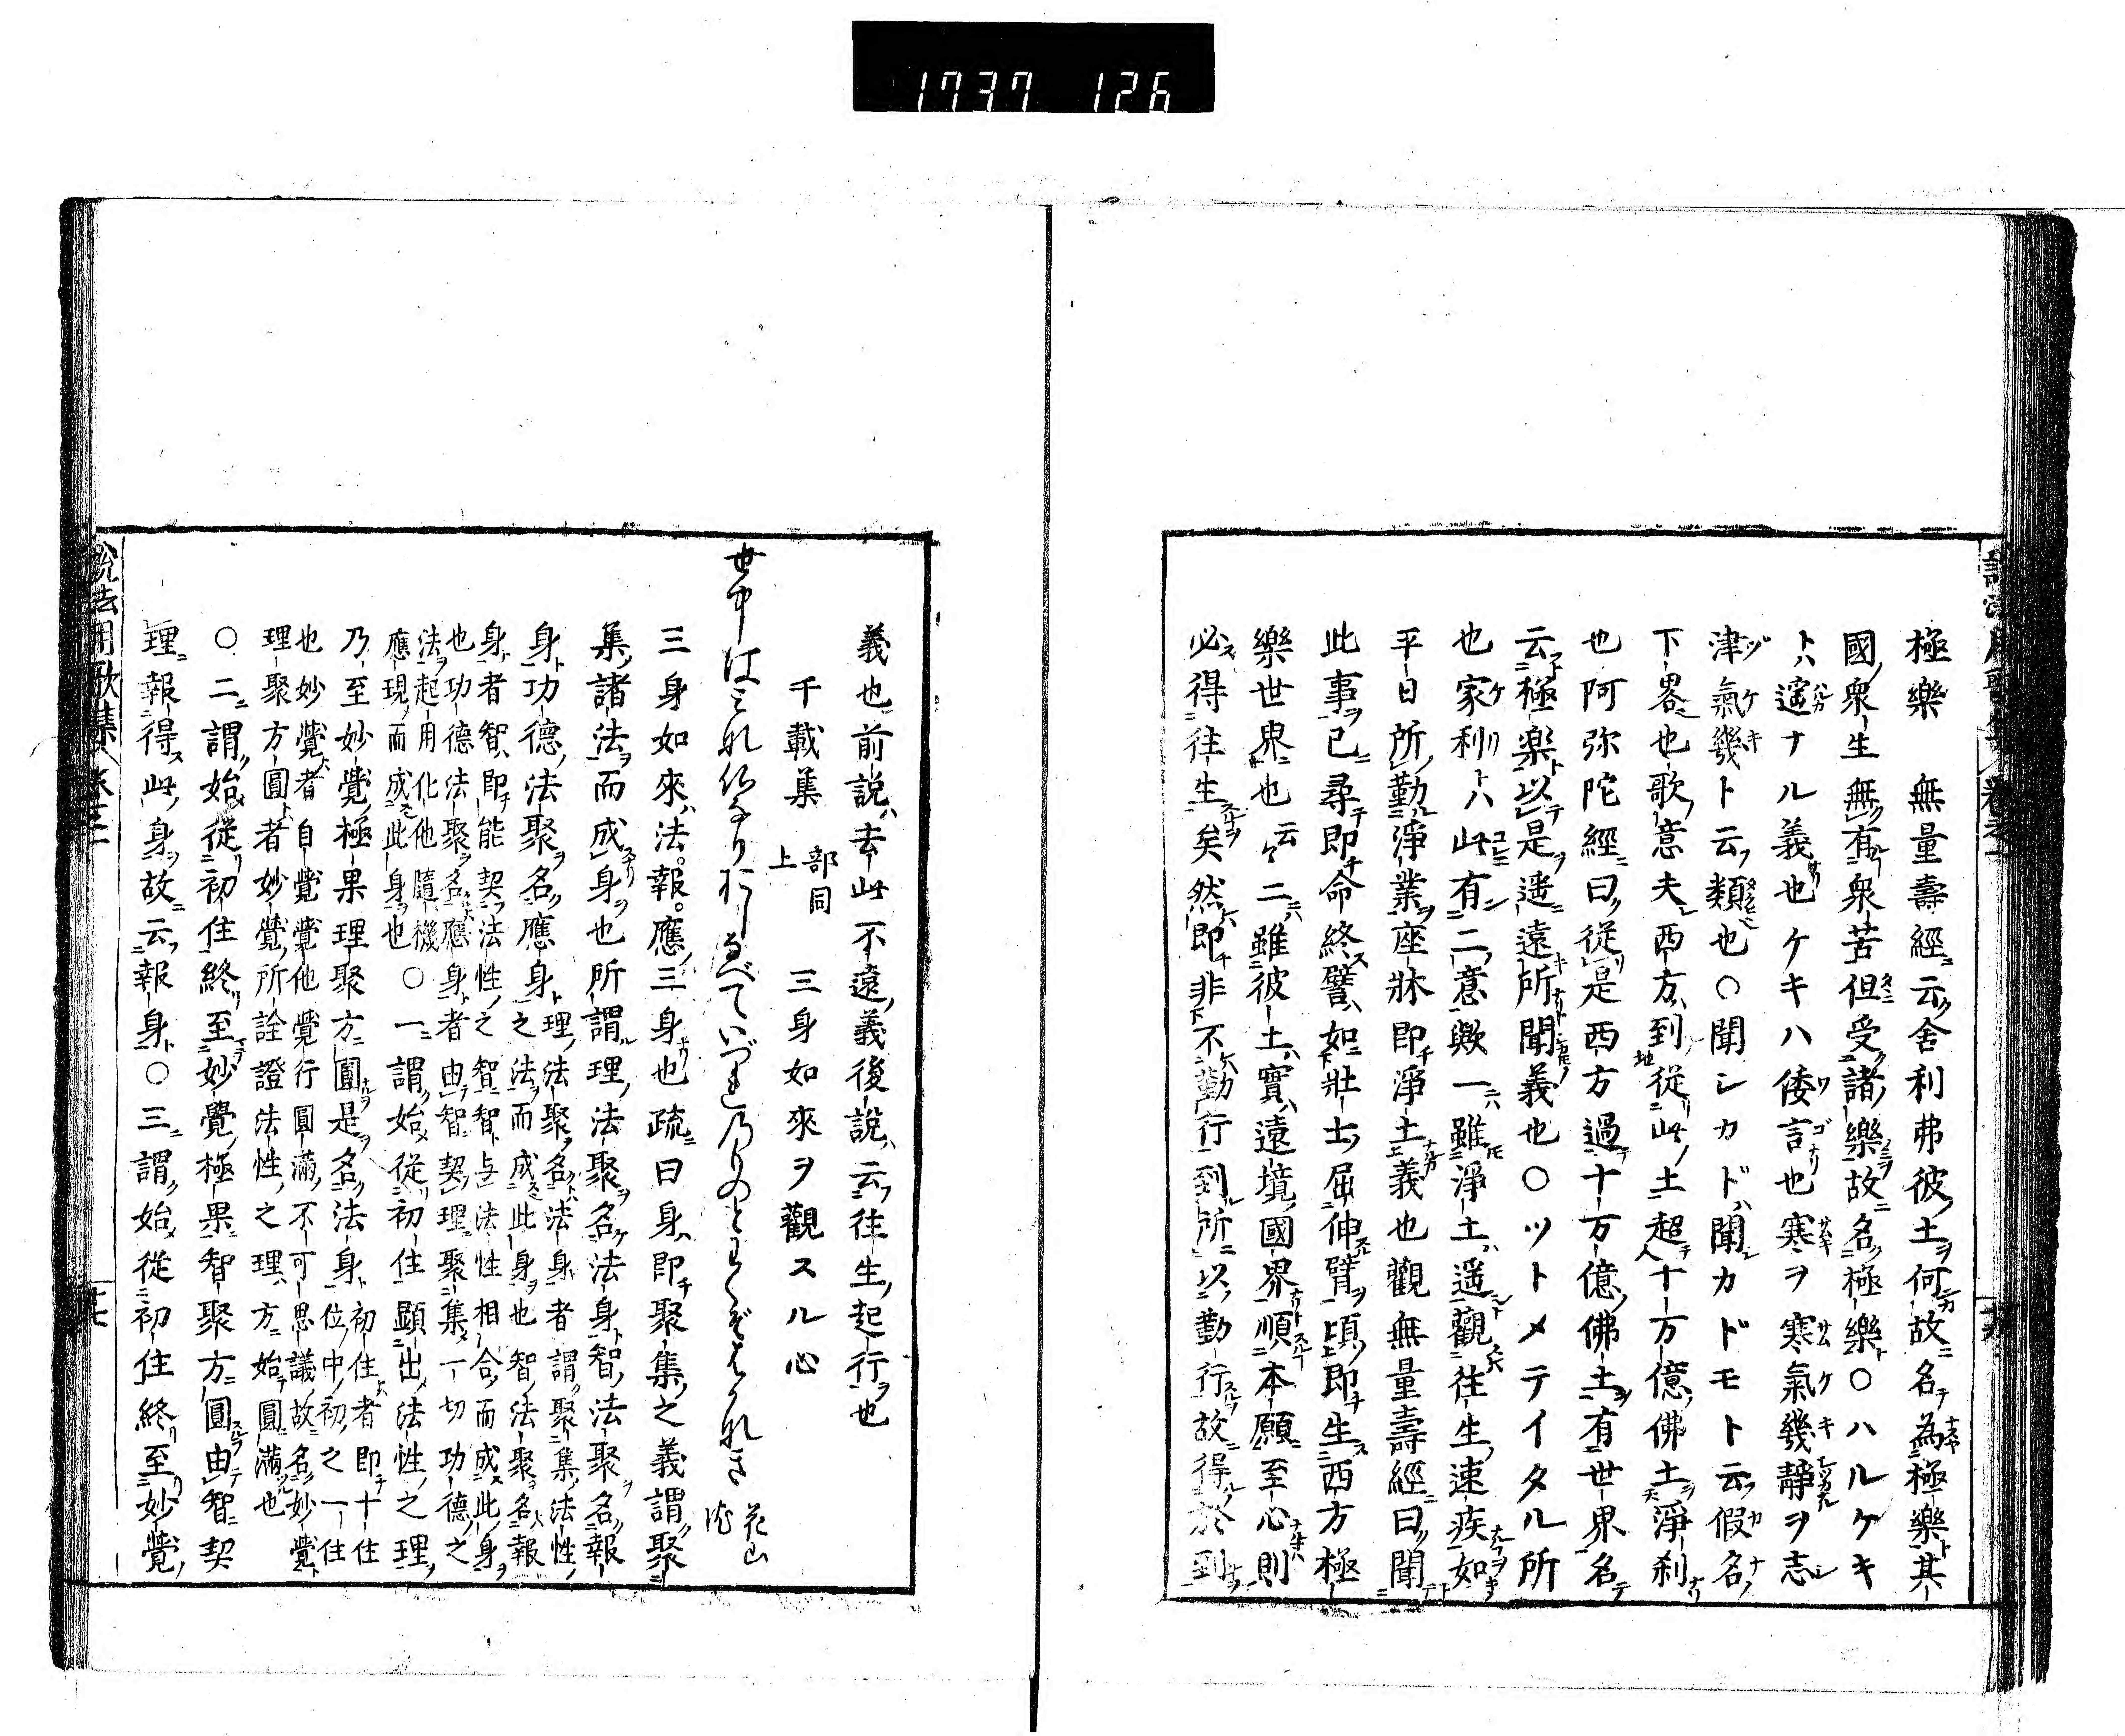 1737 126
極樂　無量壽經云舍利弗彼土何故名為極樂其
國衆生無有衆苦但受諸樂故名極樂○ハルケキ
トハ遙ナル義也ケキハ倭言也寒ヲ寒氣幾靜ヲ志
津氣幾ト云類也○聞シカドハ聞カドモト云假名
下畧也歌意夫西方到從此土超十万億佛土淨刹
也阿弥陀經曰從是西方過十万億佛土有世界名
云極楽以是遥遠所聞義也○ツトメテイタル所
也家利トハ此有二意歟一雖淨土遥觀往生速疾如
平日所勤淨業座牀即淨土義也觀無量壽經曰聞
此事已尋即命終譬如壯士屈伸臂頃即生西方極
樂世界也云々二雖彼土實遠境國界順本願至心則
必得往生矣然即非不勤行到所以勤行故得於到
義也前説去此不遠義後説云往生起行也
千載集　部同上　三身如來ヲ觀スル心
世中はみな佛なりおしなべていづれのものとわくぞはかなき　花山院
三身如來法報應三身也疏曰身即聚集之義謂聚
集諸法而成身也所謂理法聚名法身智法聚名報
身功德法聚名應身理法聚名法身者謂聚集法性
之法而成此身也智法聚名報
身者智即能契法性之智智与法性相合而成此身
也功德法聚名應身者由智契理聚集一切功德之
法起用化他隨機
應現而成此身也○一謂始從初住顯出法性之理
乃至妙覺極果理聚方圓是名法身初住者即十住
位中初之一住
也妙覺者自覺覺他覺行圓滿不可思議故名妙覺
理聚方圓者妙覺所詮證法性之理方始圓滿也
○二謂始從初住終至妙覺極果智聚方圓由智契
理報得此身故云報身○三謂始從初住終至妙覺
説法用歌集　卷之二　十七